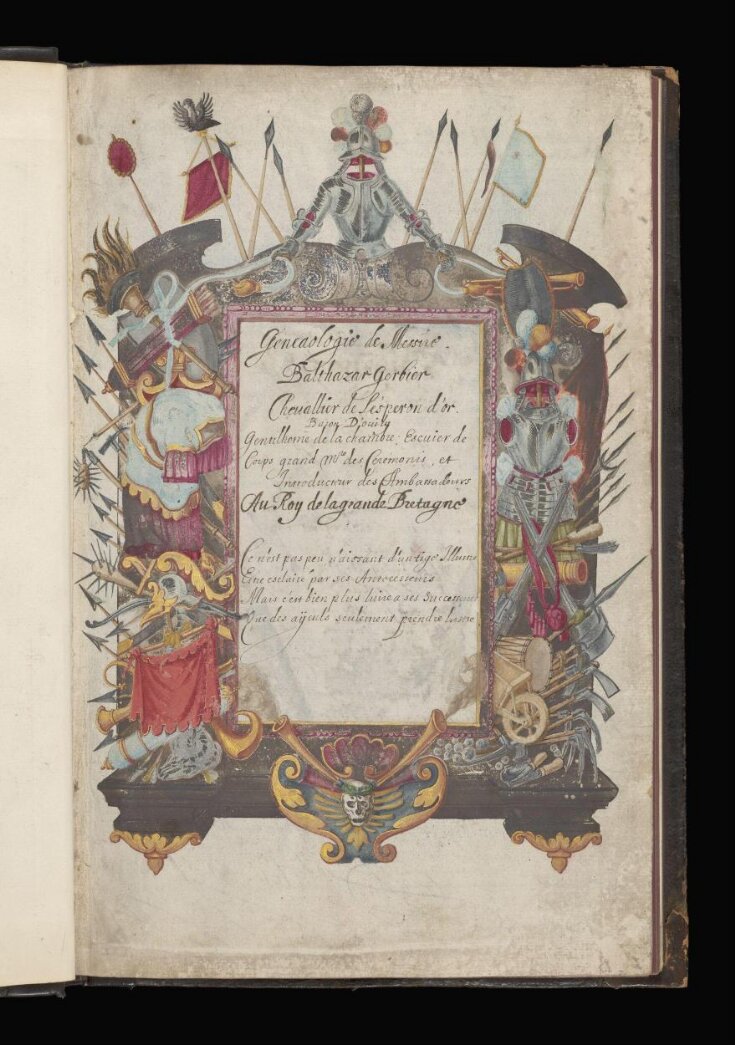 Geneaologie de Messire.
Balthazar Gerbier
Chevallier de l'esperon d'or.
Baron D'ouvily
Gentilhome de la chambre, Escuier de
Corps grand Mre des Ceremonis, et
Introducteur des Ambassadeurs
Au Roy de la grande Bretagne
Ce n'est pas peu n'aissant d'un tige Illustre
Etre esclairé par ses Antecesseurs
Mais c'est bien plus luire a ses Successeurs
Que des ayeuls seulement prendre lustre